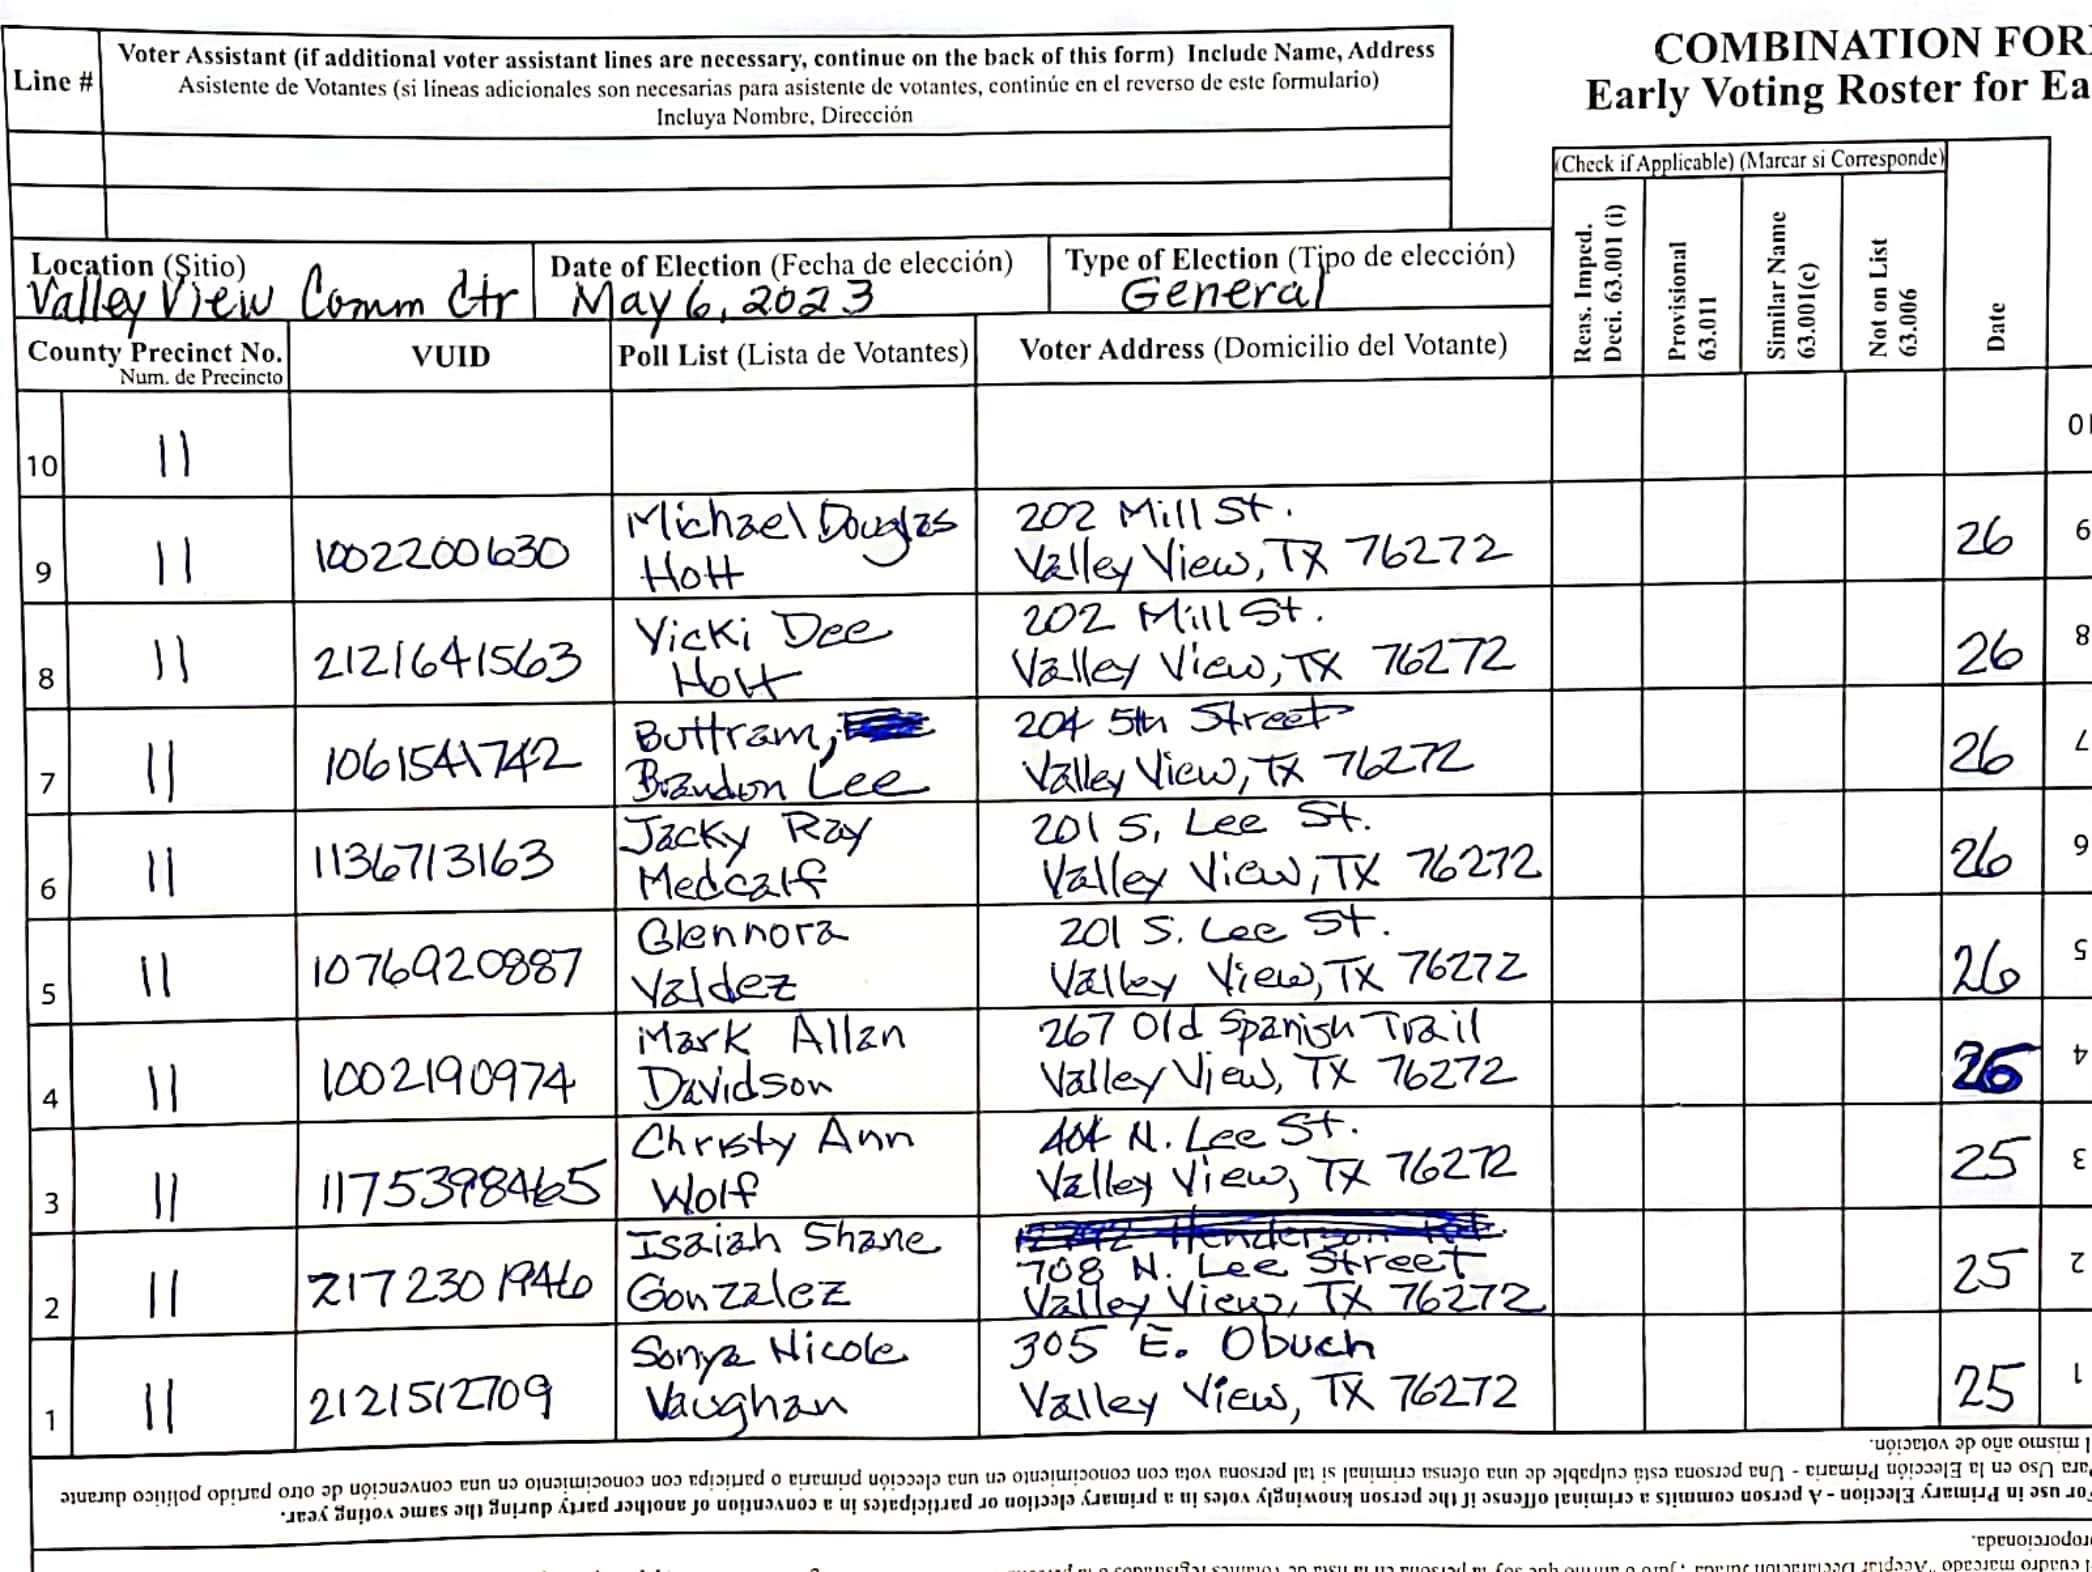 Line #
Voter Assistant (if additional voter assistant lines are necessary, continue on the back of this form) Include Name, Address
Asistente de Votantes (si líneas adicionales son necesarias para asistente de votantes, continúe en el reverso de este formulario)
Incluya Nombre, Dirección
COMBINATION FOR
Early Voting Roster for Ea
(Check if Applicable) (Marcar si Corresponde)
Reas. Imped.
Deci. 63.001 (i)
Provisional
63.011
Similar Name
63.001(c)
Not on List
63.006
Date
Location (Sitio)
Valley View Comm Ctr
Date of Election (Fecha de elección)
May 6, 2023
Type of Election (Tipo de elección)
General
County Precinct No.
Num. de Precincto
VUID
Poll List (Lista de Votantes)
Voter Address (Domicilio del Votante)
10 11 10
9 11 1002200630 Michael Douglas Hott 202 Mill St. 26 9
Valley View, TX 76272
8 11 2121641563 Vicki Dee Hott 202 Mill St. 26 8
Valley View, TX 76272
7 11 1061541742 Buttram, Brandon Lee 204 5th Street 26 7
Valley View, TX 76272
6 11 1136713163 Jacky Ray Medcalf 201 S. Lee St. 26 6
Valley View, TX 76272
5 11 1076920887 Glennora Valdez 201 S. Lee St. 26 5
Valley View, TX 76272
4 11 1002190974 Mark Allan Davidson 267 Old Spanish Trail 26 4
Valley View, TX 76272
3 11 1175398465 Christy Ann Wolf 404 N. Lee St. 25 3
Valley View, TX 76272
2 11 2172301946 Isaiah Shane Gonzalez 708 N. Lee Street 25 2
Valley View, TX 76272
1 11 2121512709 Sonya Nicole Vaughan 305 E. Obuch 25 1
Valley View, TX 76272
l mismo año de votación.
Para Uso en la Elección Primaria - Una persona está culpable de una ofensa criminal si tal persona vota con conocimiento en una elección primaria o participa con conocimiento en una convención de otro partido político durante
For use in Primary Election - A person commits a criminal offense if the person knowingly votes in a primary election or participates in a convention of another party during the same voting year.
proporcionada.